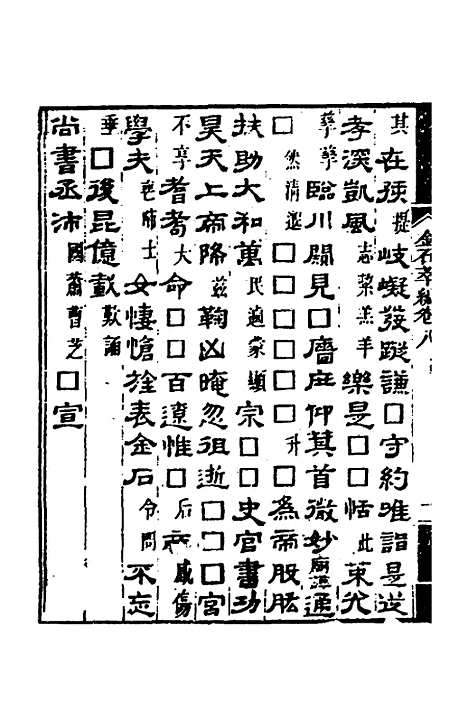 其在孩提岐嶷發蹤謙□守約唯誼是從
孝深凱風志絜羔羊樂是□□恬此東光
蔘莘臨川闚見□廧庭仰其首微妙廟謨通
□然清邈□□□□□升□爲帝股肱
扶助大和萬民逎蒙顯宗□□史官書功
昊天上帝降玆鞠凶晻忽徂逝□□□宮
不享耆耇大命□□百遼惟□后帝感傷
學夫喪師士女悽愴旌表金石令問不忘
垂□後昆億載歎誦
尚書丞沛國蕭曹芝□宣
金石萃編卷八